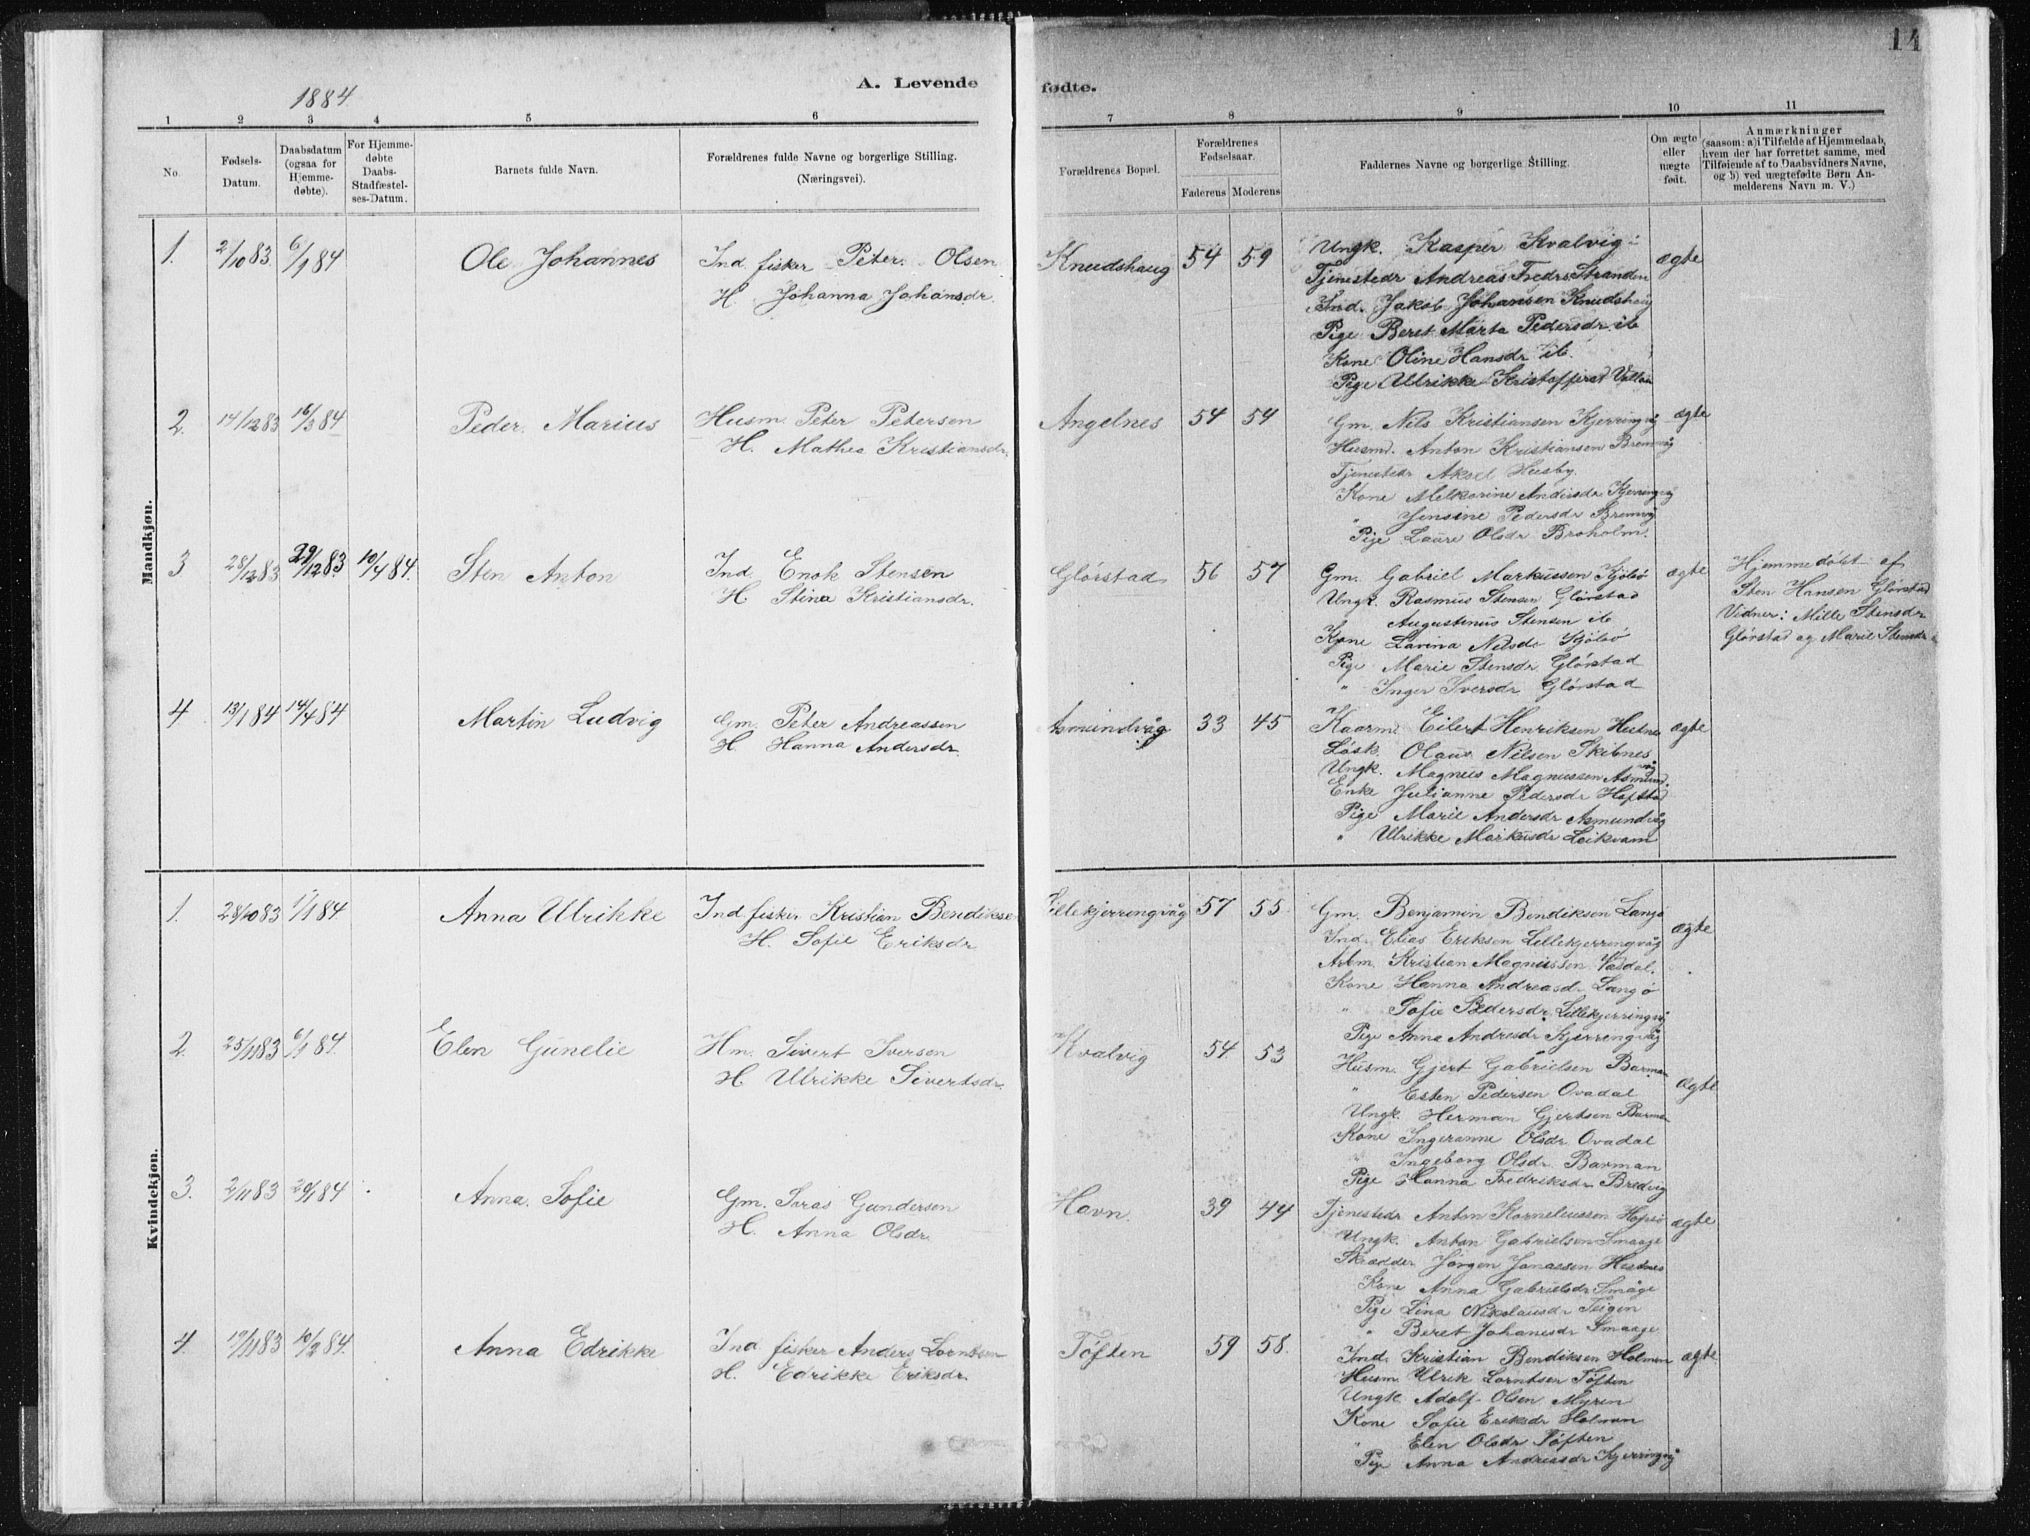 14
1884
A. Levende
fødte.
1 2 3 4 5 6 7 8 9 10 11
No.
Fødsels-
Datum.
Daabsdatum
(ogsaa for
Hjemme-
døbte).
For Hjemme-
døbte
Daabs-
Stadfæstel-
ses-Datum.
Barnets fulde Navn.
Forældrenes fulde Navne og borgerlige Stilling.
(Næringsvei).
Forældrenes Bopæl.
Forældrenes
Fødselsaar.
Faderens Moderens
Faddernes Navne og borgerlige Stilling.
Om ægte
eller
uægte
født.
Anmærkninger
(saasom: a) i Tilfælde af Hjemmedaab,
hvem der har forrettet samme, med
Tilføiende af to Daabsvidners Navne,
og b) ved uægtefødte Børn An-
melderens Navn m. V.)
Mandkjøn.
1. 2/10 83. 6/1 84 Ole Johannes
Ind. fisker Peter Olsen
H. Johanna Johansdr.
Knudshaug 54 59
Ungk. Kasper Kvalvig
Tjenestedr Andreas Fredr. Stranden
Ind. Jakob Johansen Knudshaug
Pige Beret Marta Pedersdr. ib
Kone Oline Hansdr ib.
Pige Ulrikke
ægte
2. 14/12 83 16/3 84 Peder Marius
Husm. Peter Petersen
H. Mathea Kristiansdr.
Angelnes 54 54
Gm. Nils Kristiansen Kjerringvåg
Husmd. Anton Kristiansen Bremvåg
Tjenestedr Aksel Husby.
Kone Melkorine Andersdr Kjerringvåg
" Jensine Pedersdr Bremvåg
Pige Laure Olsdr Broholm.
ægte
3 28/12 83 29/12 83. 10/4 84. Sten Anton
Ind. Enok Stensen
H. Stina Kristiansdr.
Glørstad 56 57
Gm. Gabriel Markussen Kjølsø
Ungk. Rasmus Stensen Glørstad
Augustinus Stensen ib
Kone Larina Nilsdr
Pige Marie Stensdr. Glørstad
" Inger Iversdr Glørstad
ægte
Hjemmedøbt af
Sten Hansen Glørstad
Vidner: Mille Stensdr
Glørstad og Marie Stensdr
4 13/1 84 14/4 84 Martin Ludvig
Gm. Peter Andreassen
H. Hanna Andersdr.
Asmundvåg 33 45
Kaarm. Eilert Henriksen Hestnes
Løsk. Olaus Nilsen Skibnes
Ungk. Magnus Magnussen Asmundvåg
Enke Julianne Pedersdr Hofstad
Pige Marie Andersdr Asmundvåg
" Ulrikke Markusdr Leikvam
ægte
Kvindekjøn.
1. 28/10 83 1/1 84 Anna Ulrikke
Ind. fisker Kristian Bendiksen
H. Sofie Eriksdr
Lillekjerringvåg 57 55
Gm. Benjamin Bendiksen Langø
Ind. Elias Eriksen Lillekjerringvåg
Arbm. Kristian Magnussen Vasdal.
Kone Hanna Andreasd. Langø
" Sofie Pedersdr. Lillekjerringvåg
Pige Anna Andreasdr Kjerringvåg
ægte
2. 25/11 83 6/1 84. Elen Gunelie
Hm. Sivert Iversen
H. Ulrikke Sivertsdr.
Kvalvig 54. 53
Husm. Gjert Gabrielsen Barman
" Esten Pedersen Ovadal
Ungk. Herman Gjertsen Barman
Kone Ingeranne Olsdr. Ovadal
" Ingeborg Olsdr. Barman
Pige Hanna Fredriksdr Bredvig
ægte
3. 2/11 83 20/1 84 Anna Sofie
Gm. Saras Gundersen
H. Anna Olsdr.
Havn. 39 44
Tjenestedr Anton Korneliussen Hopsø
Ungk. Anton Gabrielsen Smaage
Skrædder Jørgen Jonassen Hestnes
Kone Anna Gabrielsdr Småge
Pige Lina Nikolausdr Teigen
" Beret Johanesdr Smaage
ægte
4. 19/11 83 10/2 84. Anna Edrikke
Ind. fisker Anders Lorntsen
H. Edrikke Eriksdr.
Tøften 59 58.
Ind. Kristian Bendiksen Holmen
Husm. Ulrik Lorntsen Tøften
Ungk. Adolf Olsen Myren
Kone Sofie Eriksdr Holmen
" Elen Olsdr Tøften
Pige Anna Andreasdr Kjerringvåg
ægte